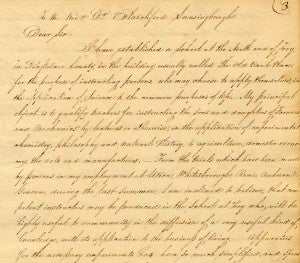 3
To the Revd. Dr. Blatchford Lansingburgh
Dear Sir
I have established a school at the north end of Troy
in Rensselaer County, in the building usually called the Old Bank Place
for the purpose of instructing persons who may choose to apply themselves, in
the application of science to the common purposes of life. My principal
object is to qualify teachers for instructing the sons and daughters of Farmers
and Mechanics by lectures or otherwise, in the application of experimental
chemistry, philosophy and natural history to agriculture, domestic economy
the arts and manufactures. From the trials which have been made
by persons in my employment at Utica, Whitesborough Rome, Auburn &
Geneva during the last summer, I am inclined to believe, that com-
petent instructors may be produced in the School at Troy, who will be
highly useful to community in the diffusion of a very useful kind of
knowledge, with its application to the business of living. Apparatus
for the necessary experiments has been so much simplified, and